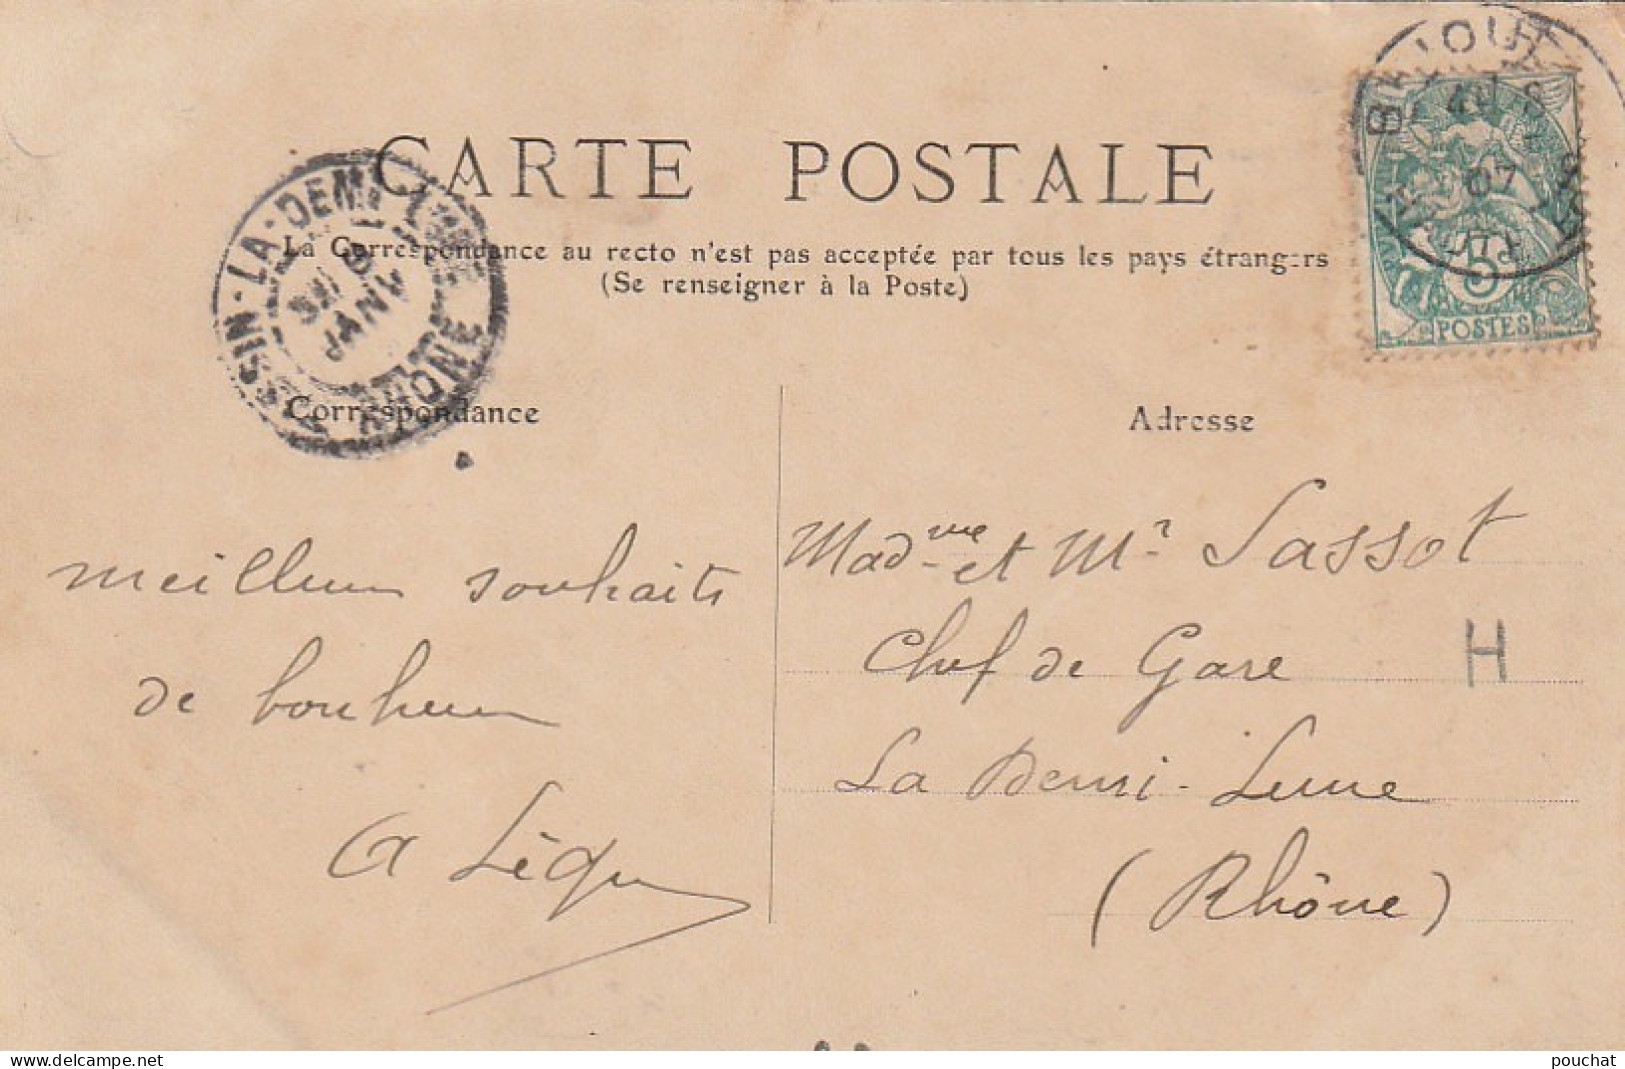 CARTE POSTALE
La Correspondance au recto n'est pas acceptée par tous les pays étrangers
(Se renseigner à la Poste)
TASSIN-LA-DEMI-LUNE
JANV
RHONE
07
5
POSTES
Correspondance
Adresse
meilleurs souhaits
de bonheur
Madme et Mr Sassot
Chef de Gare
H
La Demi-Lune
(Rhône)
www.delcampe.net
pouchat